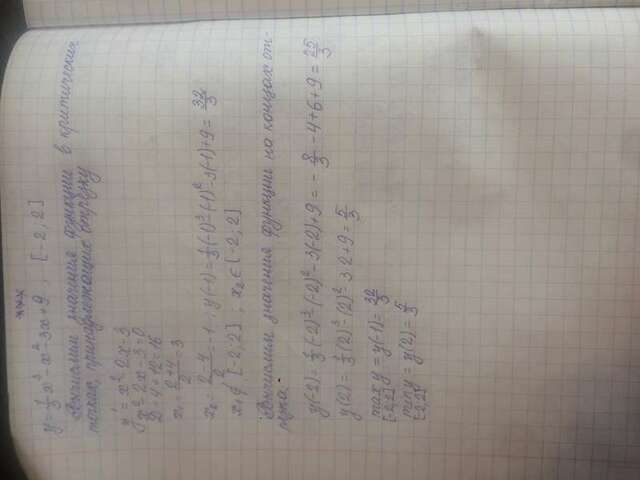 y = 1/3 x³ - x² - 3x + 9, [-2, 2]
Вычислим значения функции в критических
точках, принадлежащих отрезку
y' = x² - 2x - 3
x² - 2x - 3 = 0
D = 4 + 12 = 16
x₁ = (2+4)/2 = 3
x₂ = (2-4)/2 = -1, y(-1) = 1/3(-1)³-(-1)²-3(-1)+9 = 32/3
x₁ ∉ [-2, 2], x₂ ∈ [-2, 2]
Вычислим значения функции на концах от-
резка.
y(-2) = 1/3(-2)³-(-2)²-3(-2)+9 = -8/3-4+6+9 = 25/3
y(2) = 1/3(2)³-(2)²-3·2+9 = 5/3
max y = y(-1) = 32/3
[-2,2]
min y = y(2) = 5/3
[-2,2]